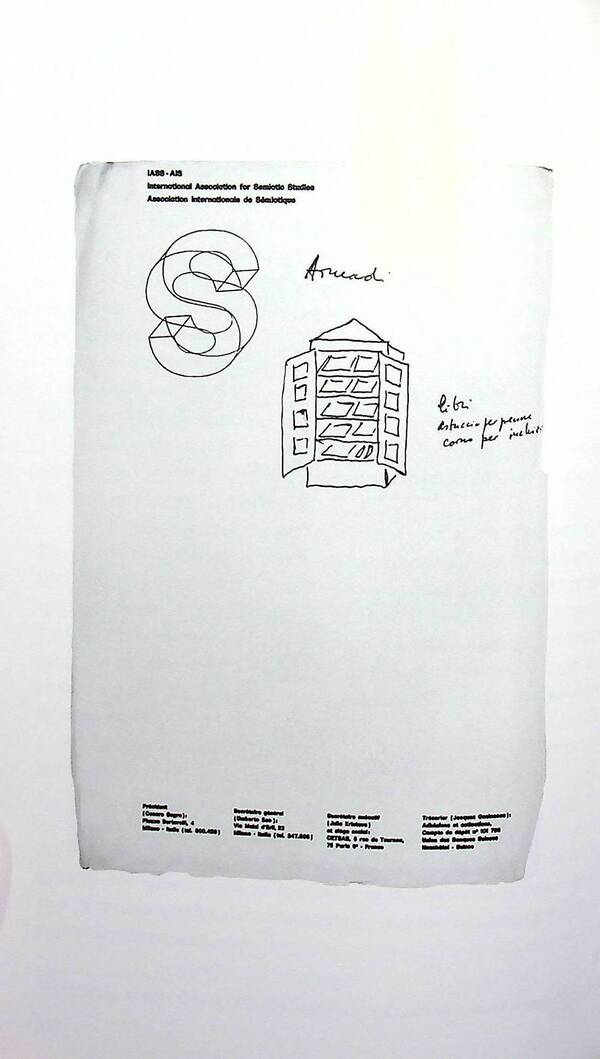 IASS-AIS
International Association for Semiotic Studies
Association Internationale de Sémiotique
S
Armadi
libri
astuccio per penne
corno per inchios
Président
(Cesare Segre):
Milano - Italie (tel.
Secrétaire général
(Umberto Eco):
Via Melzi d'Eril, 23
Milano - Italie (tel.
Secrétaire exécutif
(Julia Kristeva)
et siège social:
rue de Tournon,
75 Paris 6e - France
Trésorier (Jacques Geninasca):
Adhésions et cotisations,
Compte de dépôt nº 101
Union des Banques Suisses
Neuchâtel - Suisse